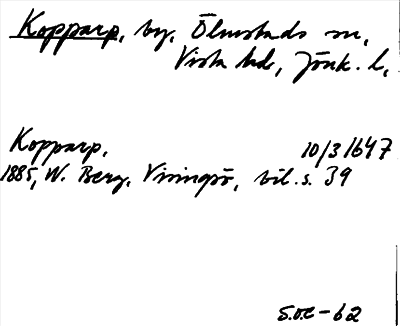 Kopparp, by, Ölmstads sn,
Vista hd, Jönk. l,
Kopparp. 10/3 1647
1885, W. Berg. Visingsö, bil. s. 39
S.O.E-62